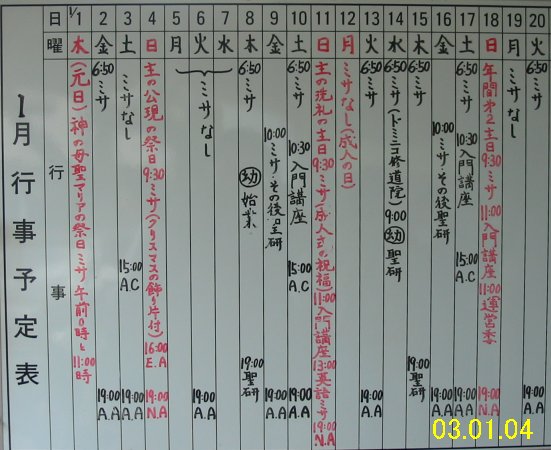 1月行事予定表
日 1/1 2 3 4 5 6 7 8 9 10 11 12 13 14 15 16 17 18 19 20
曜 木 金 土 日 月 火 水 木 金 土 日 月 火 水 木 金 土 日 月 火
行事
(元日)神の母聖マリアの祭日ミサ午前0時と11:00時
6:50ミサ 19:00 A.A
ミサなし 15:00 A.C 19:00 A.A
主の公現の祭日9:30ミサ(クリスマスの飾り片付) 16:00 E.A 19:00 N.A
ミサなし 19:00 A.A
6:50ミサ ㊙幼 始業 19:00聖研
10:00ミサ・その後聖研 19:00 A.A
6:50ミサ 10:30入門講座 15:00 A.C 19:00 A.A
主の洗礼の主日9:30ミサ(成人式の祝福)11:00入門講座13:00英語ミサ 19:00 N.A
ミサなし(成人の日)
6:50ミサ 19:00 A.A
6:50ミサ(ドミニコ修道院)9:00幼聖研
6:50ミサ 19:00聖研
10:00ミサ・その後聖研 19:00 A.A
6:50ミサ 10:30入門講座 15:00 A.C 19:00 A.A
年間第2主日9:30ミサ 11:00入門講座11:00運営委 19:00 N.A
ミサなし
6:50ミサ 19:00 A.A
03.01.04